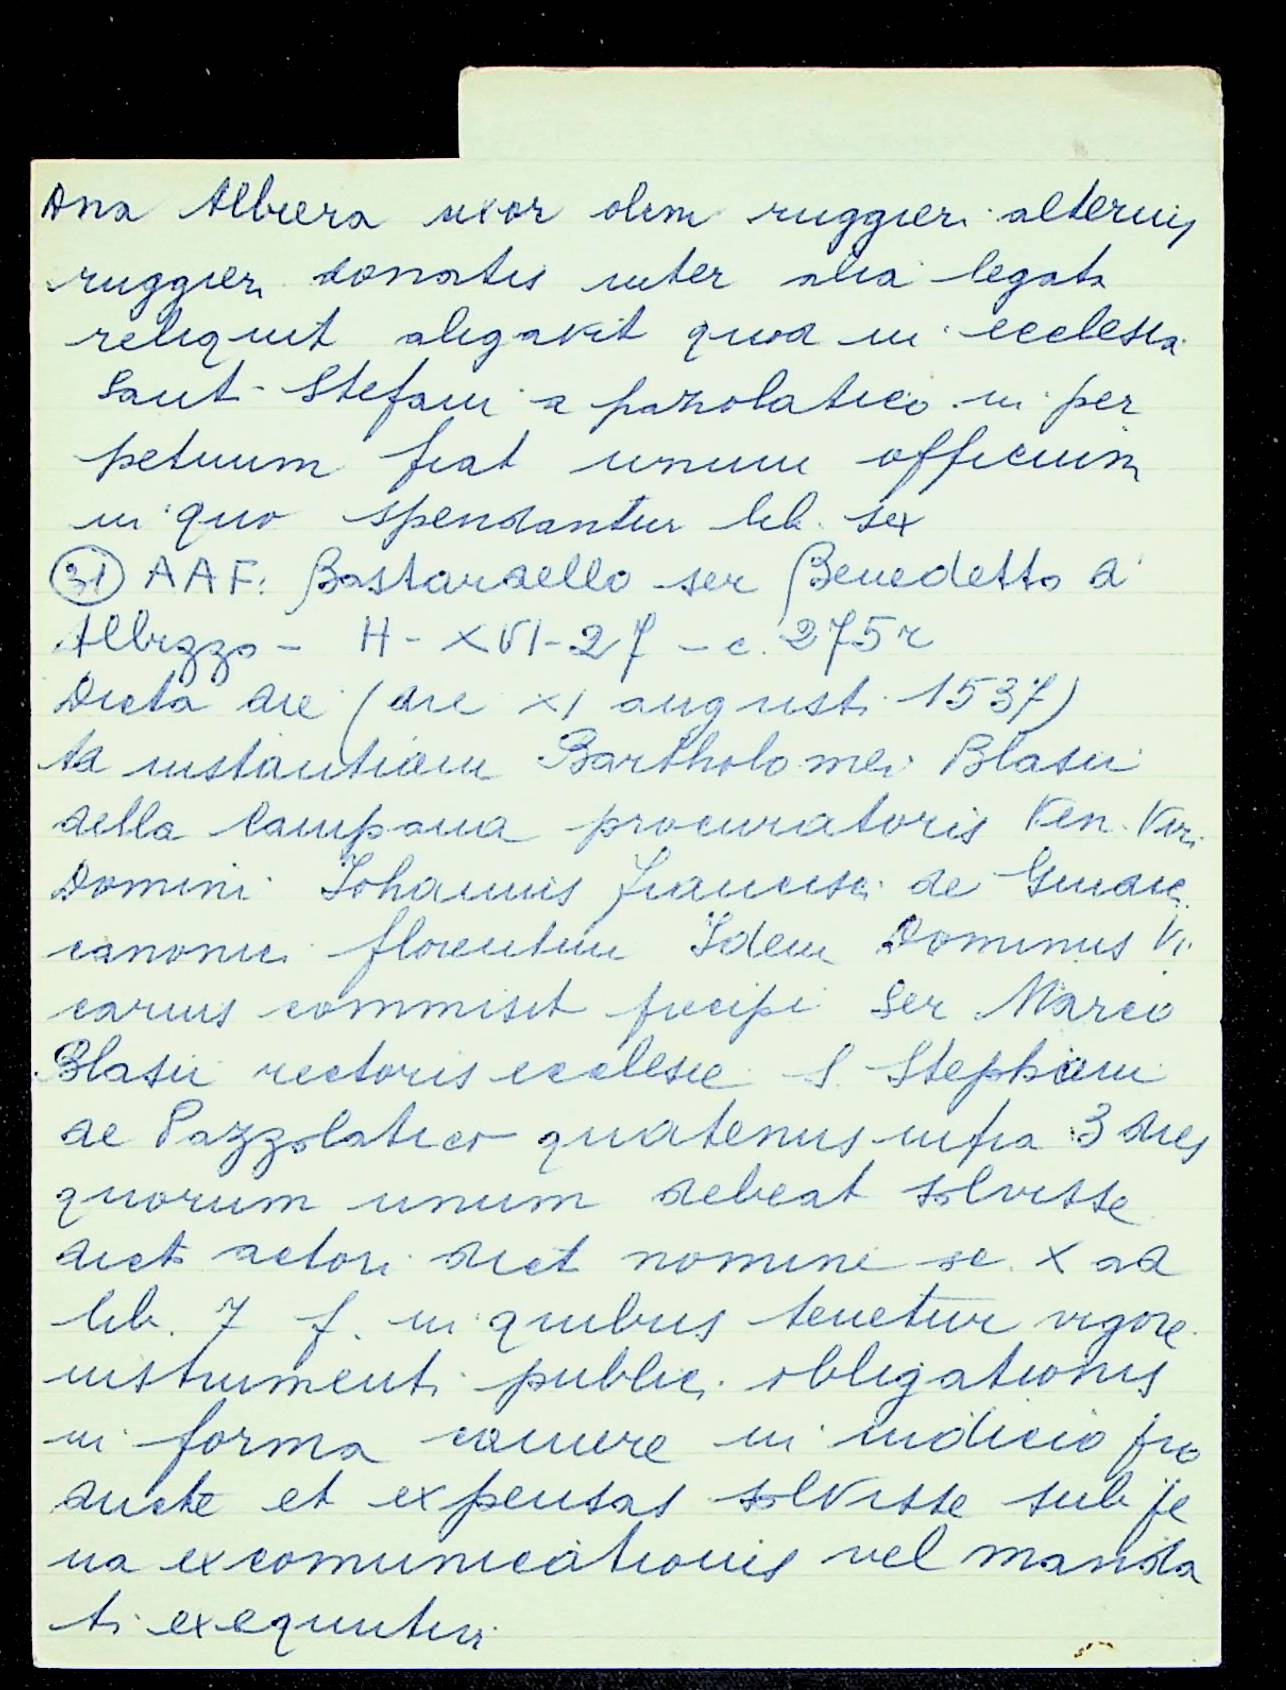 Dna Albiera uxor olim ruggieri alterius
ruggieri donatis inter alia legata
reliquit alegavit quod in ecclesia
Sant Stefani a pazolatico in per
petuum fiat unum officium
in quo spendantur lib. sex
(31) AAF: Bastardello ser Benedetto d'
Albizzo - H-XVI-27 - c. 275r
Dicta die (die XI augusti 1537)
Ad instantiam Bartholomei Blasii
della Campana procuratoris Ven. Viri
Domini Johannis Francisci de
canonici florentini Idem Dominus Vi
carius commisit precipi Ser Marco
Blasii rectoris ecclesie S. Stephani
de Pazzolatico quatenus infra 3 dies
quorum unum debeat solvisse
dicti actori dict nomine sc. X ad
lib. 7 f. in quibus tenetur vigore
instrumenti publici obligationis
in forma camere in iudicio pro
ducte et expensas solvisse sub pe
na excomunicationis vel manda
ti exequutivi